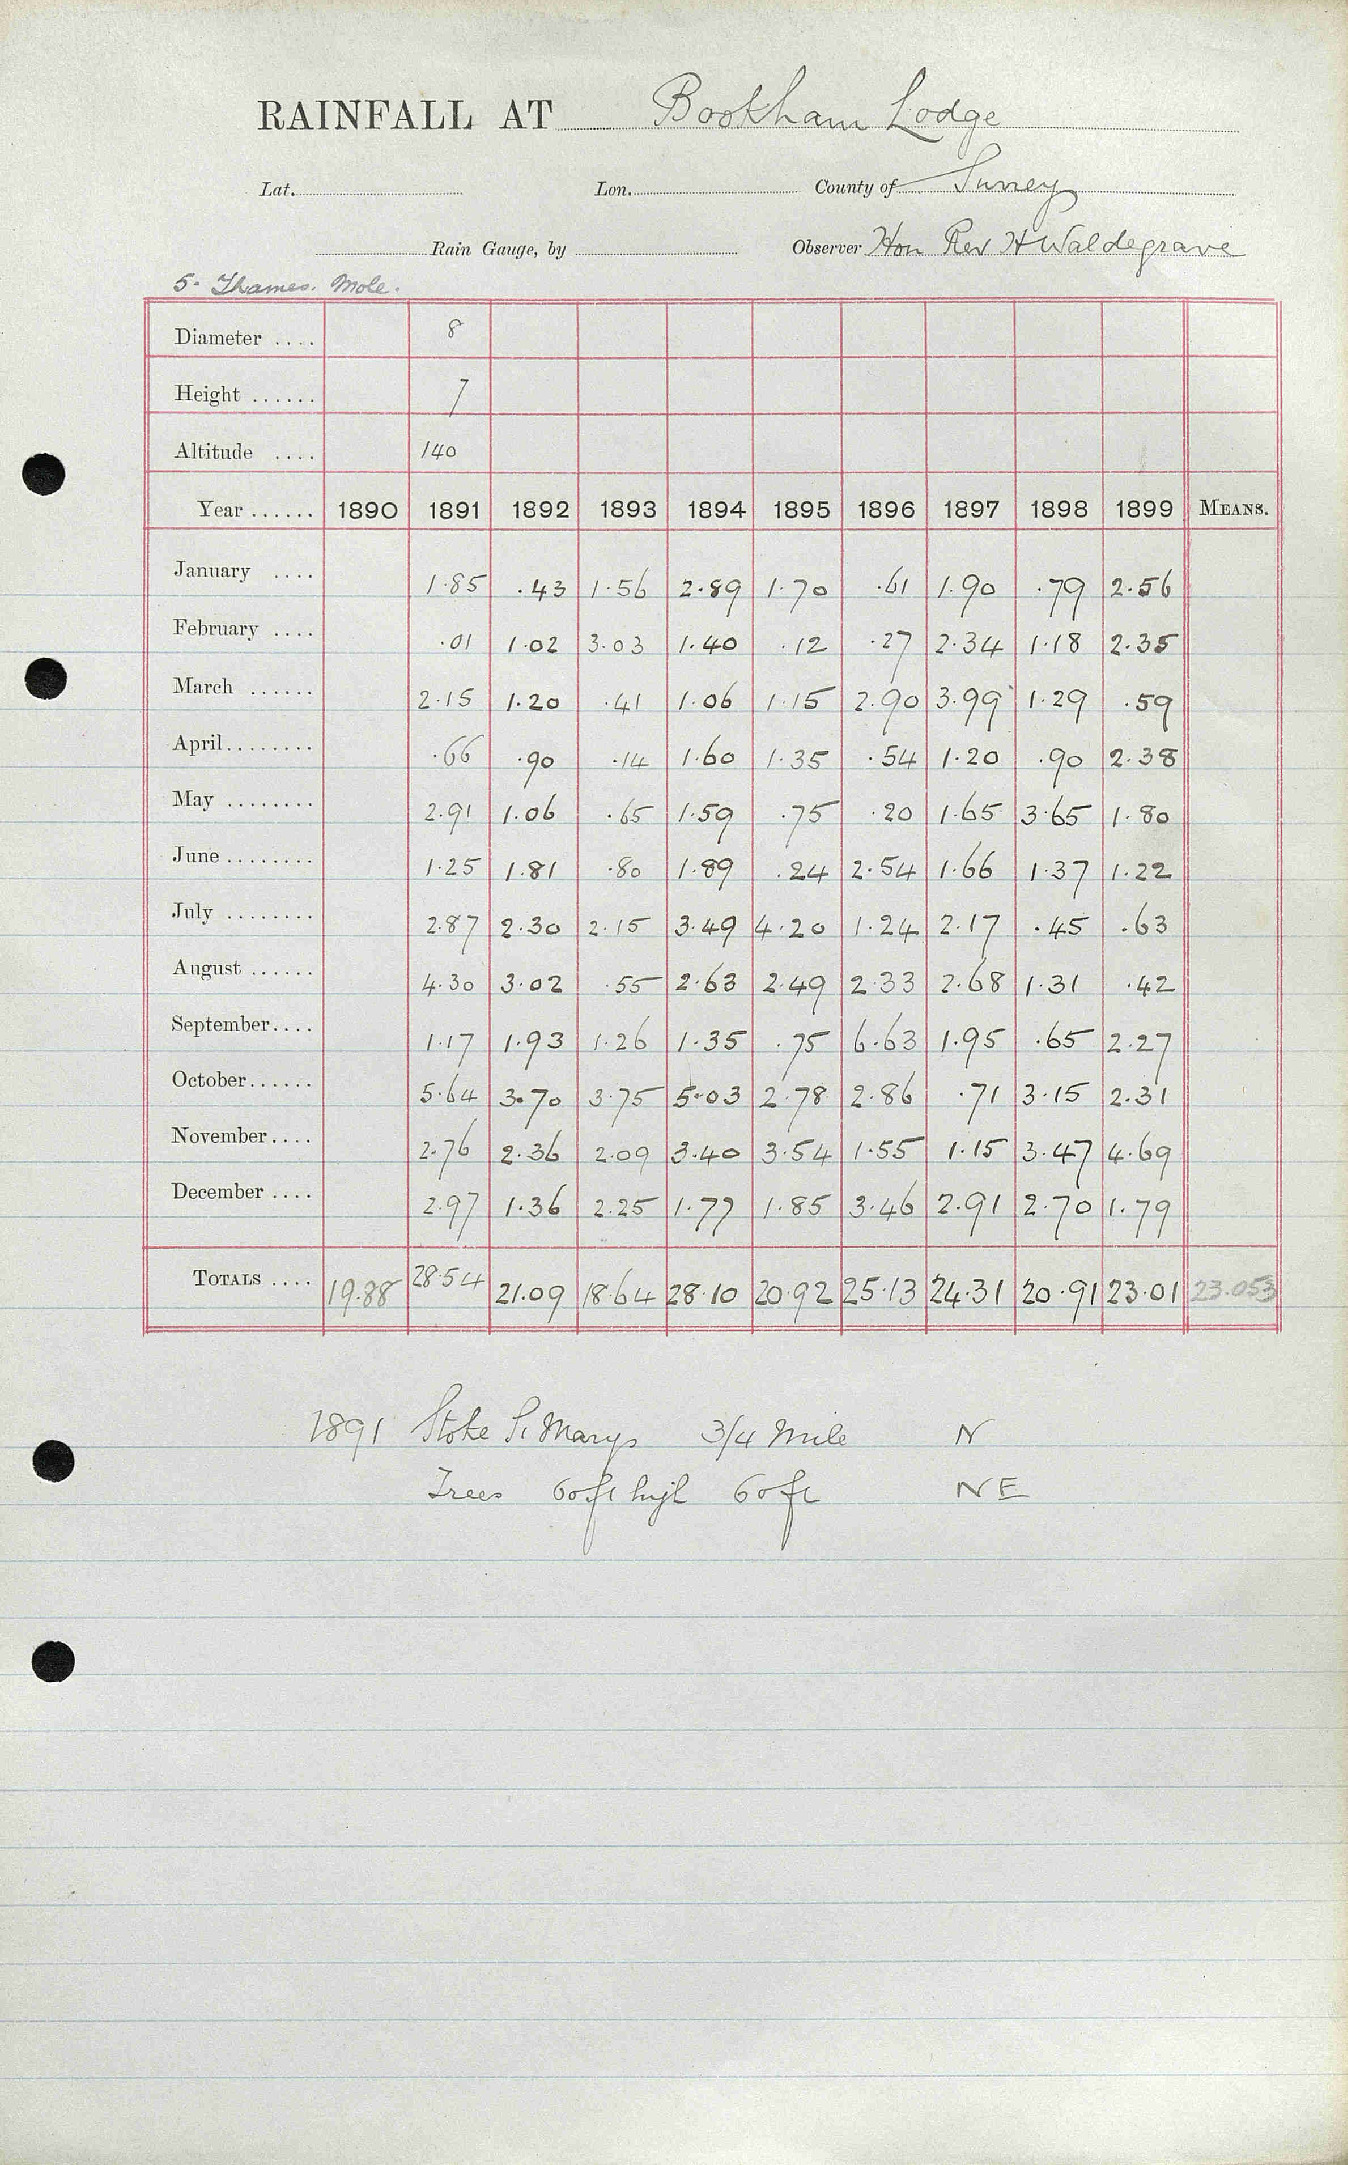 RAINFALL AT Bookham Lodge
Lat. Lon. County of Surrey
Rain Gauge, by Observer Hon Rev H Waldegrave
5. Thames. Mole.
Diameter .... 8
Height ...... 7
Altitude .... 140
Year ...... 1890 1891 1892 1893 1894 1895 1896 1897 1898 1899 MEANS.
January .... 1.85 .43 1.56 2.89 1.70 .61 1.90 .79 2.56
February .... .01 1.02 3.03 1.40 .12 .27 2.34 1.18 2.35
March ...... 2.15 1.20 .41 1.06 1.15 2.90 3.99 1.29 .59
April........ .66 .90 .14 1.60 1.35 .54 1.20 .90 2.38
May ........ 2.91 1.06 .65 1.59 .75 .20 1.65 3.65 1.80
June ........ 1.25 1.81 .80 1.89 .24 2.54 1.66 1.37 1.22
July ........ 2.87 2.30 2.15 3.49 4.20 1.24 2.17 .45 .63
August ...... 4.30 3.02 .55 2.63 2.49 2.33 2.68 1.31 .42
September.... 1.17 1.93 1.26 1.35 .75 6.63 1.95 .65 2.27
October...... 5.64 3.70 3.75 5.03 2.78 2.86 .71 3.15 2.31
November.... 2.76 2.36 2.09 3.40 3.54 1.55 1.15 3.47 4.69
December .... 2.97 1.36 2.25 1.77 1.85 3.46 2.91 2.70 1.79
TOTALS .... 19.88 28.54 21.09 18.64 28.10 20.92 25.13 24.31 20.91 23.01 23.053
1891 Stoke St Marys 3/4 Mile N
Trees 60 ft high 60 ft NE